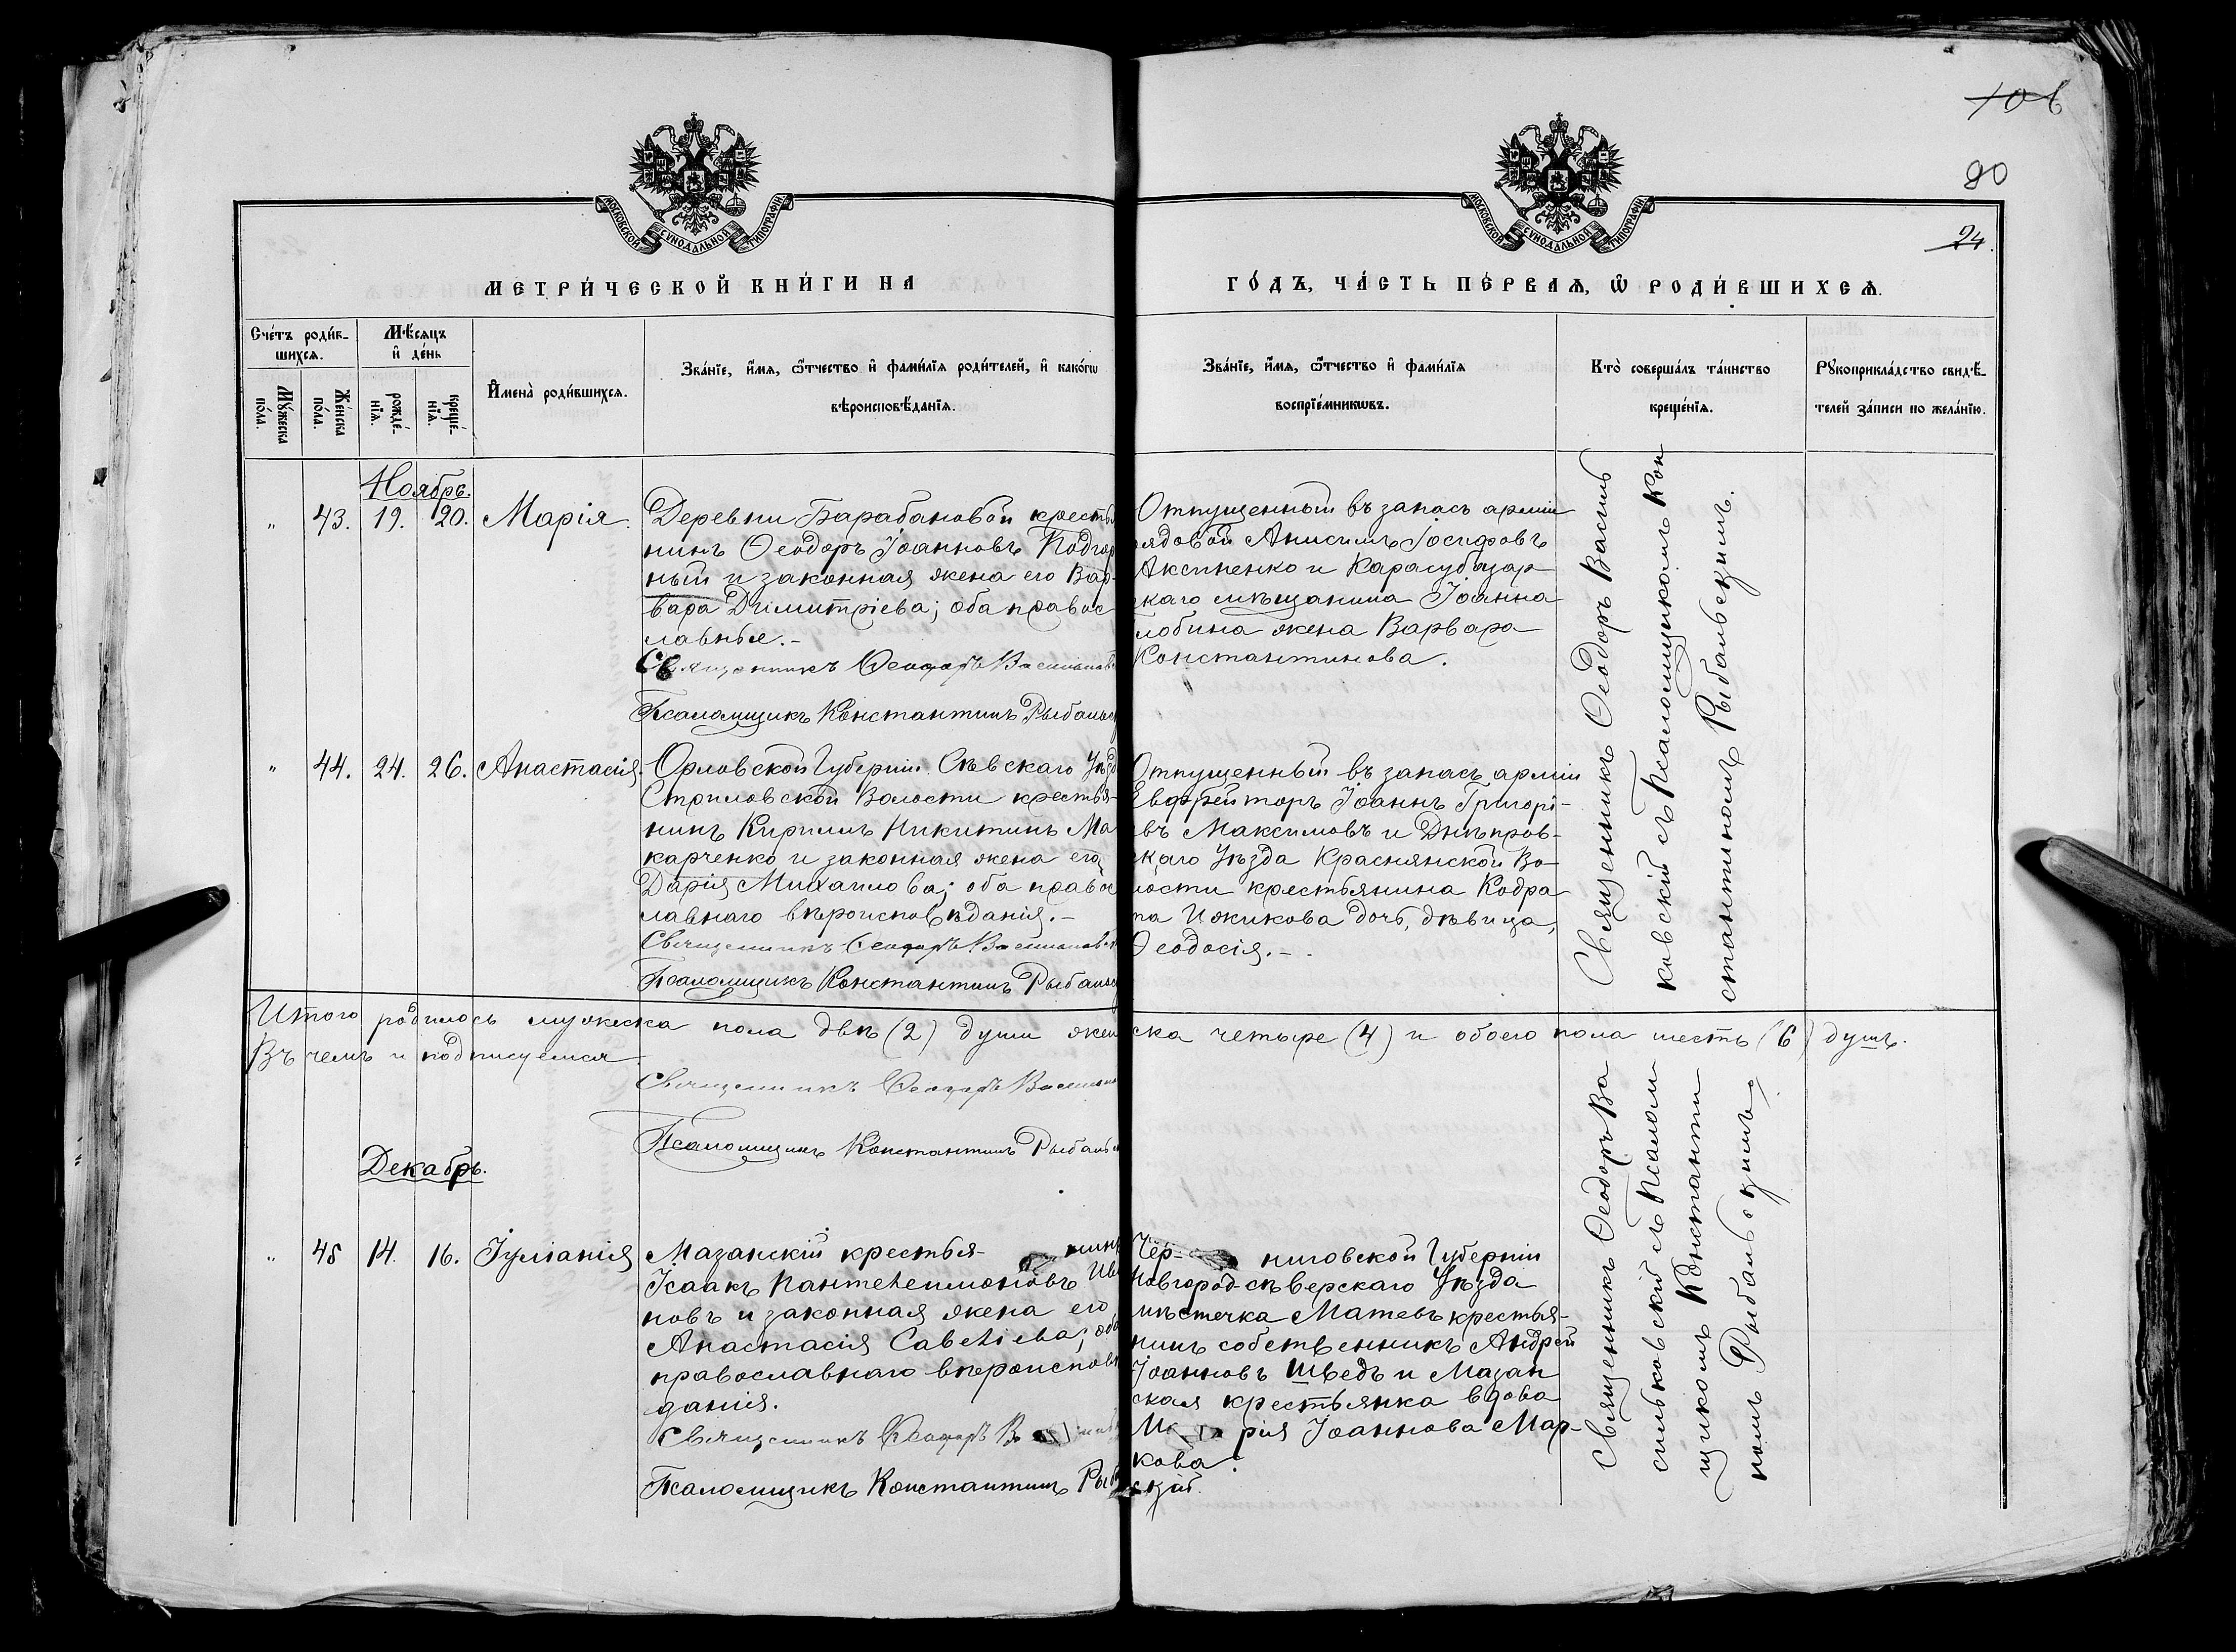 106
80
24.
МОСКОВСКОЙ СѴНОДАЛЬНОЙ ТИПОГРАФІИ
МОСКОВСКОЙ СѴНОДАЛЬНОЙ ТИПОГРАФІИ
МЕТРИ́ЧЕСКОЙ КНИ́ГИ НА
ГО́ДЪ, ЧА́СТЬ ПЕ́РВАѦ, Ѿ РОДИ́ВШИХСѦ.
Сче́тъ роди́в-
шихсѧ.
Мꙋ́жеска
по́ла.
Же́нска
по́ла.
Мѣ́сѧцъ
и҆ де́нь
рожде́-
нїѧ.
креще́-
нїѧ.
И҆мена̀ роди́вшихсѧ.
Зва́нїе, и҆́мѧ, ѻ҆́тчество и҆ фами́лїѧ роди́телей, и҆ како́гѡ
вѣроисповѣ́данїѧ.
Зва́нїе, и҆́мѧ, ѻ҆́тчество и҆ фами́лїѧ
воспрїе́мникѡвъ.
Кто̀ соверша́лъ та́инство
креще́нїѧ.
Рꙋкоприкла́дство свидѣ́-
телей за́писи по жела́нїю.
Ноябрь.
" 43. 19. 20. Марія.
Деревни Барабановой крестья
нинъ Ѳеодоръ Іоанновъ Подгор
ный и законная жена его Вар-
вара Димитріева; оба правос
лавные.-
Священникъ Ѳеодоръ Васильков
Псаломщикъ Константинъ Рыбальс
Отпущенный въ запасъ арміи
рядовой Анисимъ Іосифовъ
Аксиненко и Карасубазар-
скаго мѣщанина Іоанна
лобина жена Варвара
Константинова.
Священникъ Ѳеодоръ Василь
ковскій съ Псаломщикомъ Кон
стантиномъ Рыбальскимъ.
" 44. 24. 26. Анастасія.
Орловской Губерніи Сѣвскаго Уѣзд
Волости крестья-
нинъ Кириллъ Никитинъ Ма
карченко и законная жена его
Дарія Михаилова; оба правос
лавнаго вѣроисповѣданія.-
Священникъ Ѳеодоръ Васильковск
Псаломщикъ Константинъ Рыбальс
Отпущенный въ запасъ арміи
Ефрейторъ Іоаннъ Григорі-
евъ Максимовъ и Днѣпров-
скаго Уѣзда Краснянской Во-
лости крестьянина Кодра
та Ижикова дочь, дѣвица,
Ѳеодосія.-.
Итого родилось мужеска пола двѣ (2) души женска четыре (4) и обоего пола шесть (6) душъ.
Въ чемъ и подписуемся
Священникъ Ѳеодоръ Васильк
Псаломщикъ Константинъ Рыбальс
Декабрь.
" 45 14. 16. Іуліанія
Мазанскій крестья- нинъ
Ісаакъ Пантелеимоновъ Ива
новъ и законная жена его,
Анастасія Савеліева; оба
православнаго вѣроисповѣ
данія.
Священникъ Ѳеодоръ
Псаломщикъ Константинъ Рыбальскій.
Чер- ниговской Губерніи
Новгород-сѣверскаго Уѣзда
мѣстечка крестья-
нинъ собственникъ Андрей
Іоанновъ Шведъ и Мазан
ская крестьянка вдова
Ма рія Іоаннова Мар-
кова.
Священникъ Ѳеодоръ Ва
сильковскій съ Псалом
щикомъ Константи
номъ Рыбальскимъ.